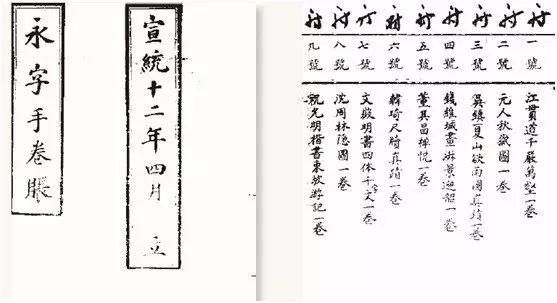 宣統十二年四月 立
永字手卷賬
一號 江貫道千巖萬壑一卷
二號 元人秋嶽圖一卷
三號 吳鎮夏山欲雨圖真蹟一卷
四號 錢維城畫游景迎韶一卷
五號 董其昌禪悅一卷
六號 韓琦尺牘真蹟一卷
七號 文徵明書四体千文一卷
八號 沈周林隱圖一卷
九號 祝允明楷書東坡游記一卷